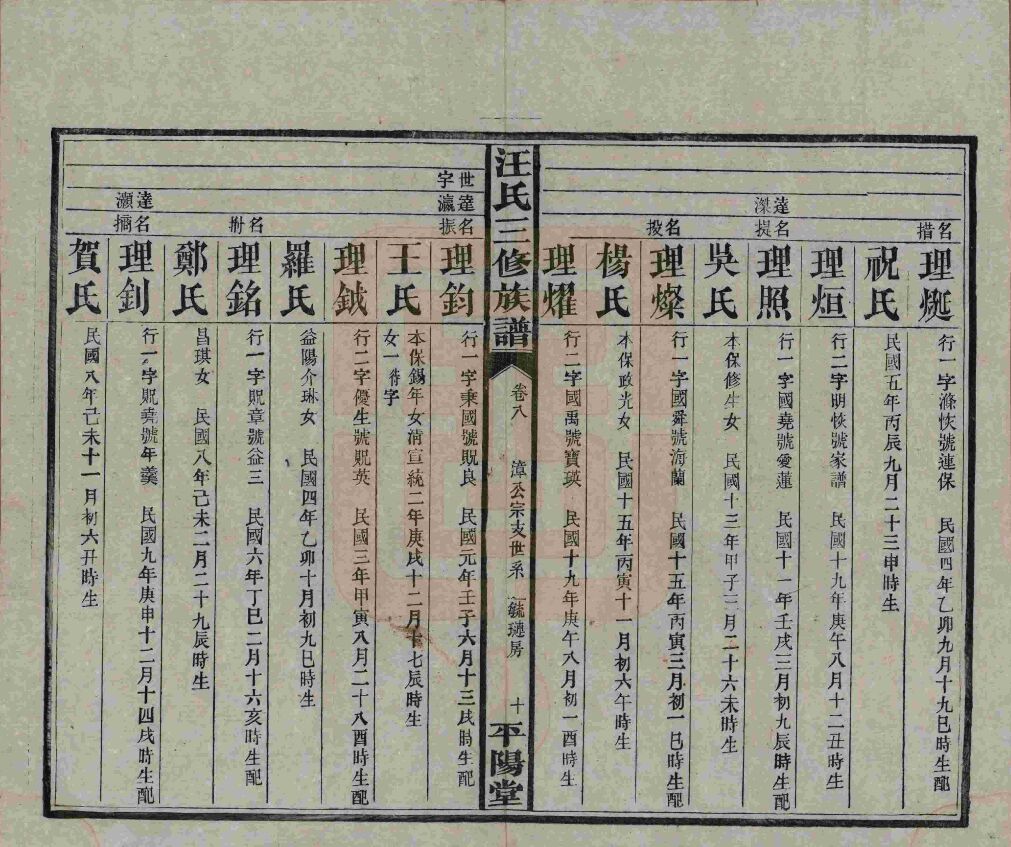 名措
理烻 行一字滌恢號連保 民國四年乙卯九月十九巳時生配
祝氏 民國五年丙辰九月二十三申時生
理烜 行二字明恢號家譜 民國十九年庚午八月十二丑時生
達滐
名提
理照 行一字國堯號愛蓮 民國十一年壬戌三月初九辰時生配
吳氏 本保修生女 民國十三年甲子三月二十六未時生
名投
理燦 行一字國舜號海蘭 民國十五年丙寅三月初一巳時生配
楊氏 本保政光女 民國十五年丙寅十一月初六午時生
理燿 行二字國禹號寶瑛 民國十九年庚午八月初一酉時生
汪氏三修族譜 卷八 漳公宗支世系 毓璉房 十 平陽堂
世字
達瀛
名振
理鈞 行一字秉國號貺良 民國元年壬子六月十三戌時生配
王氏 本保錫年女清宣統二年庚戌十二月十七辰時生
女一待字
理鉞 行二字優生號貺英 民國三年甲寅八月二十八酉時生配
羅氏 益陽介琳女 民國四年乙卯十月初九巳時生
名拊
理銘 行一字貺章號益三 民國六年丁巳二月十六亥時生配
鄭氏 昌琪女 民國八年己未二月二十九辰時生
達灝
名摛
理釗 行一字堯號年羹 民國九年庚申十二月十四戌時生配
賀氏 民國八年己未十一月初六丑時生